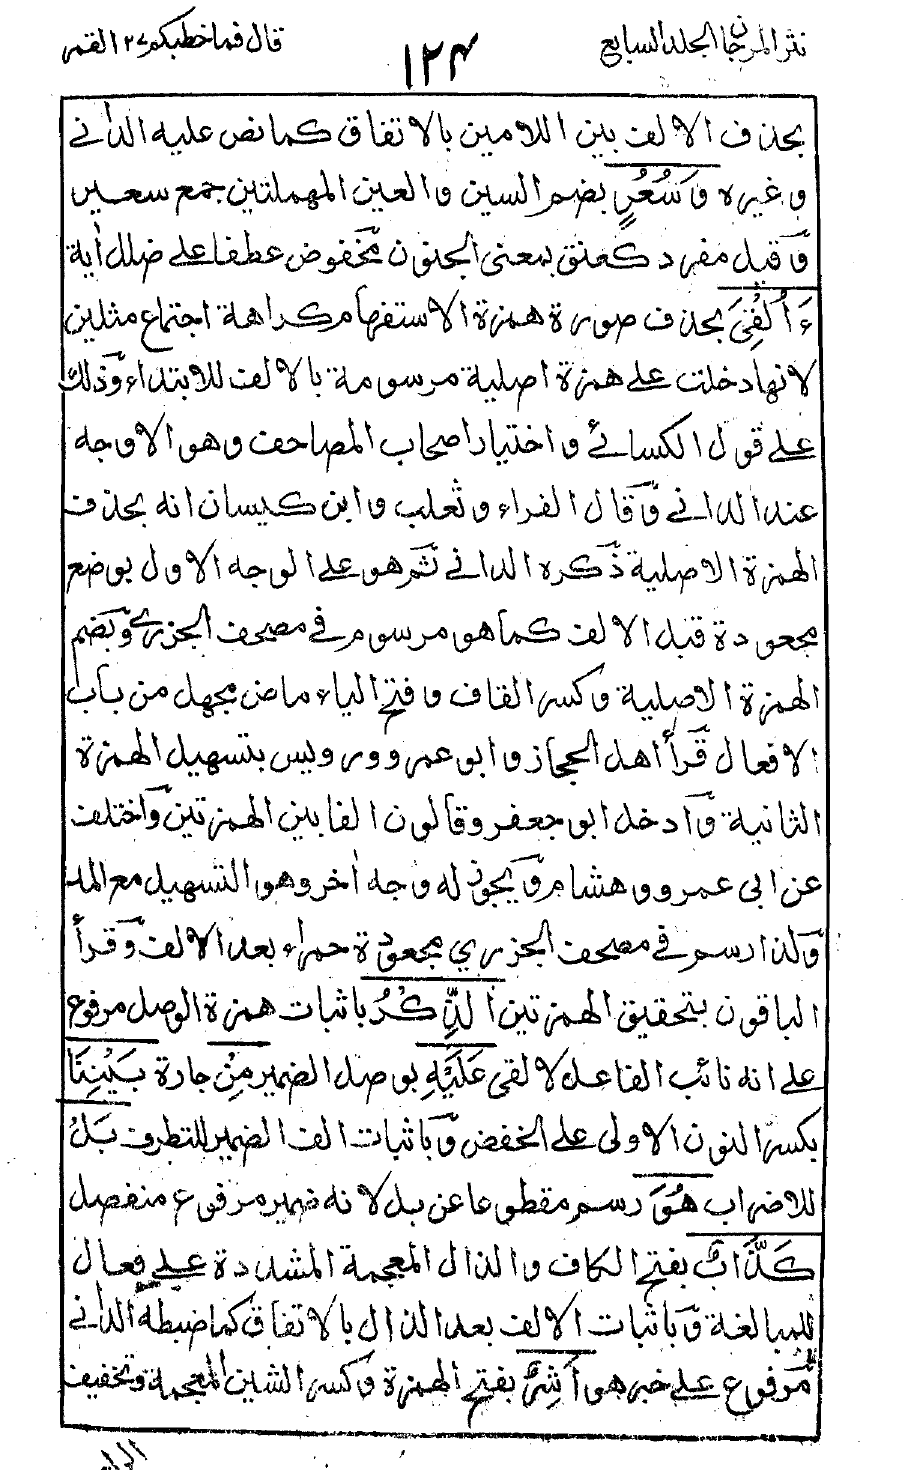 نثر المرجان الجلد السابع
١٢٤
قال فما خطبكم ٢٧ القمر
بحذف الالف بين اللامين بالاتفاق كما نص عليه الدانى
وغيره وَسُعُرٍ بضم السين والعين المهملتين جمع سعير
وقيل مفرد كعنق بمعنى الجنون مخفوض عطفا على ضلل اٰية
ءَاُلْقِىَ بحذف صورة همزة الاستفهام كراهة اجتماع مثلين
لانها دخلت على همزة اصلية مرسومة بالالف للابتداء وذلك
على قول الكسائى واختيار اصحاب المصاحف وهو الاوجه
عند الدانى وقال الفراء وثعلب وابن كيسان انه بحذف
الهمزة الاصلية ذكره الدانى ثم هو على الوجه الاول بوضع
مجعودة قبل الالف كما هو مرسوم فى مصحف الجزرى وبضم
الهمزة الاصلية وكسر القاف وفتح الياء ماض مجهل من باب
الافعال قرأ اهل الحجاز وابو عمرو ورويس بتسهيل الهمزة
الثانية وادخل ابو جعفر وقالون الفا بين الهمزتين واختلف
عن ابى عمرو وهشام ويجوز له وجه اٰخر وهو التسهيل مع المد
ولذا رسم فى مصحف الجزري مجعودة حمراء بعد الالف وقرأ
الباقون بتحقيق الهمزتين الذِّكْرُ باثبات همزة الوصل مرفوع
على انه نائب الفاعل لالقى عَلَيْهِ بوصل الضمير مِنْ جارة بَيْنِنَا
بكسر النون الاولى على الخفض وباثبات الف الضمير للتطرف بَلْ
للاضراب هُوَ رسم مقطوعا عن بل لانه ضمير مرفوع منفصل
كَذَّابٌ بفتح الكاف والذال المعجمة المشددة على فعال
للمبالغة وباثبات الالف بعد الذال بالاتفاق كما ضبطه الدانى
مرفوع على خبر هو اَشِرٌ بفتح الهمزة وكسر الشين المعجمة وتخفيف